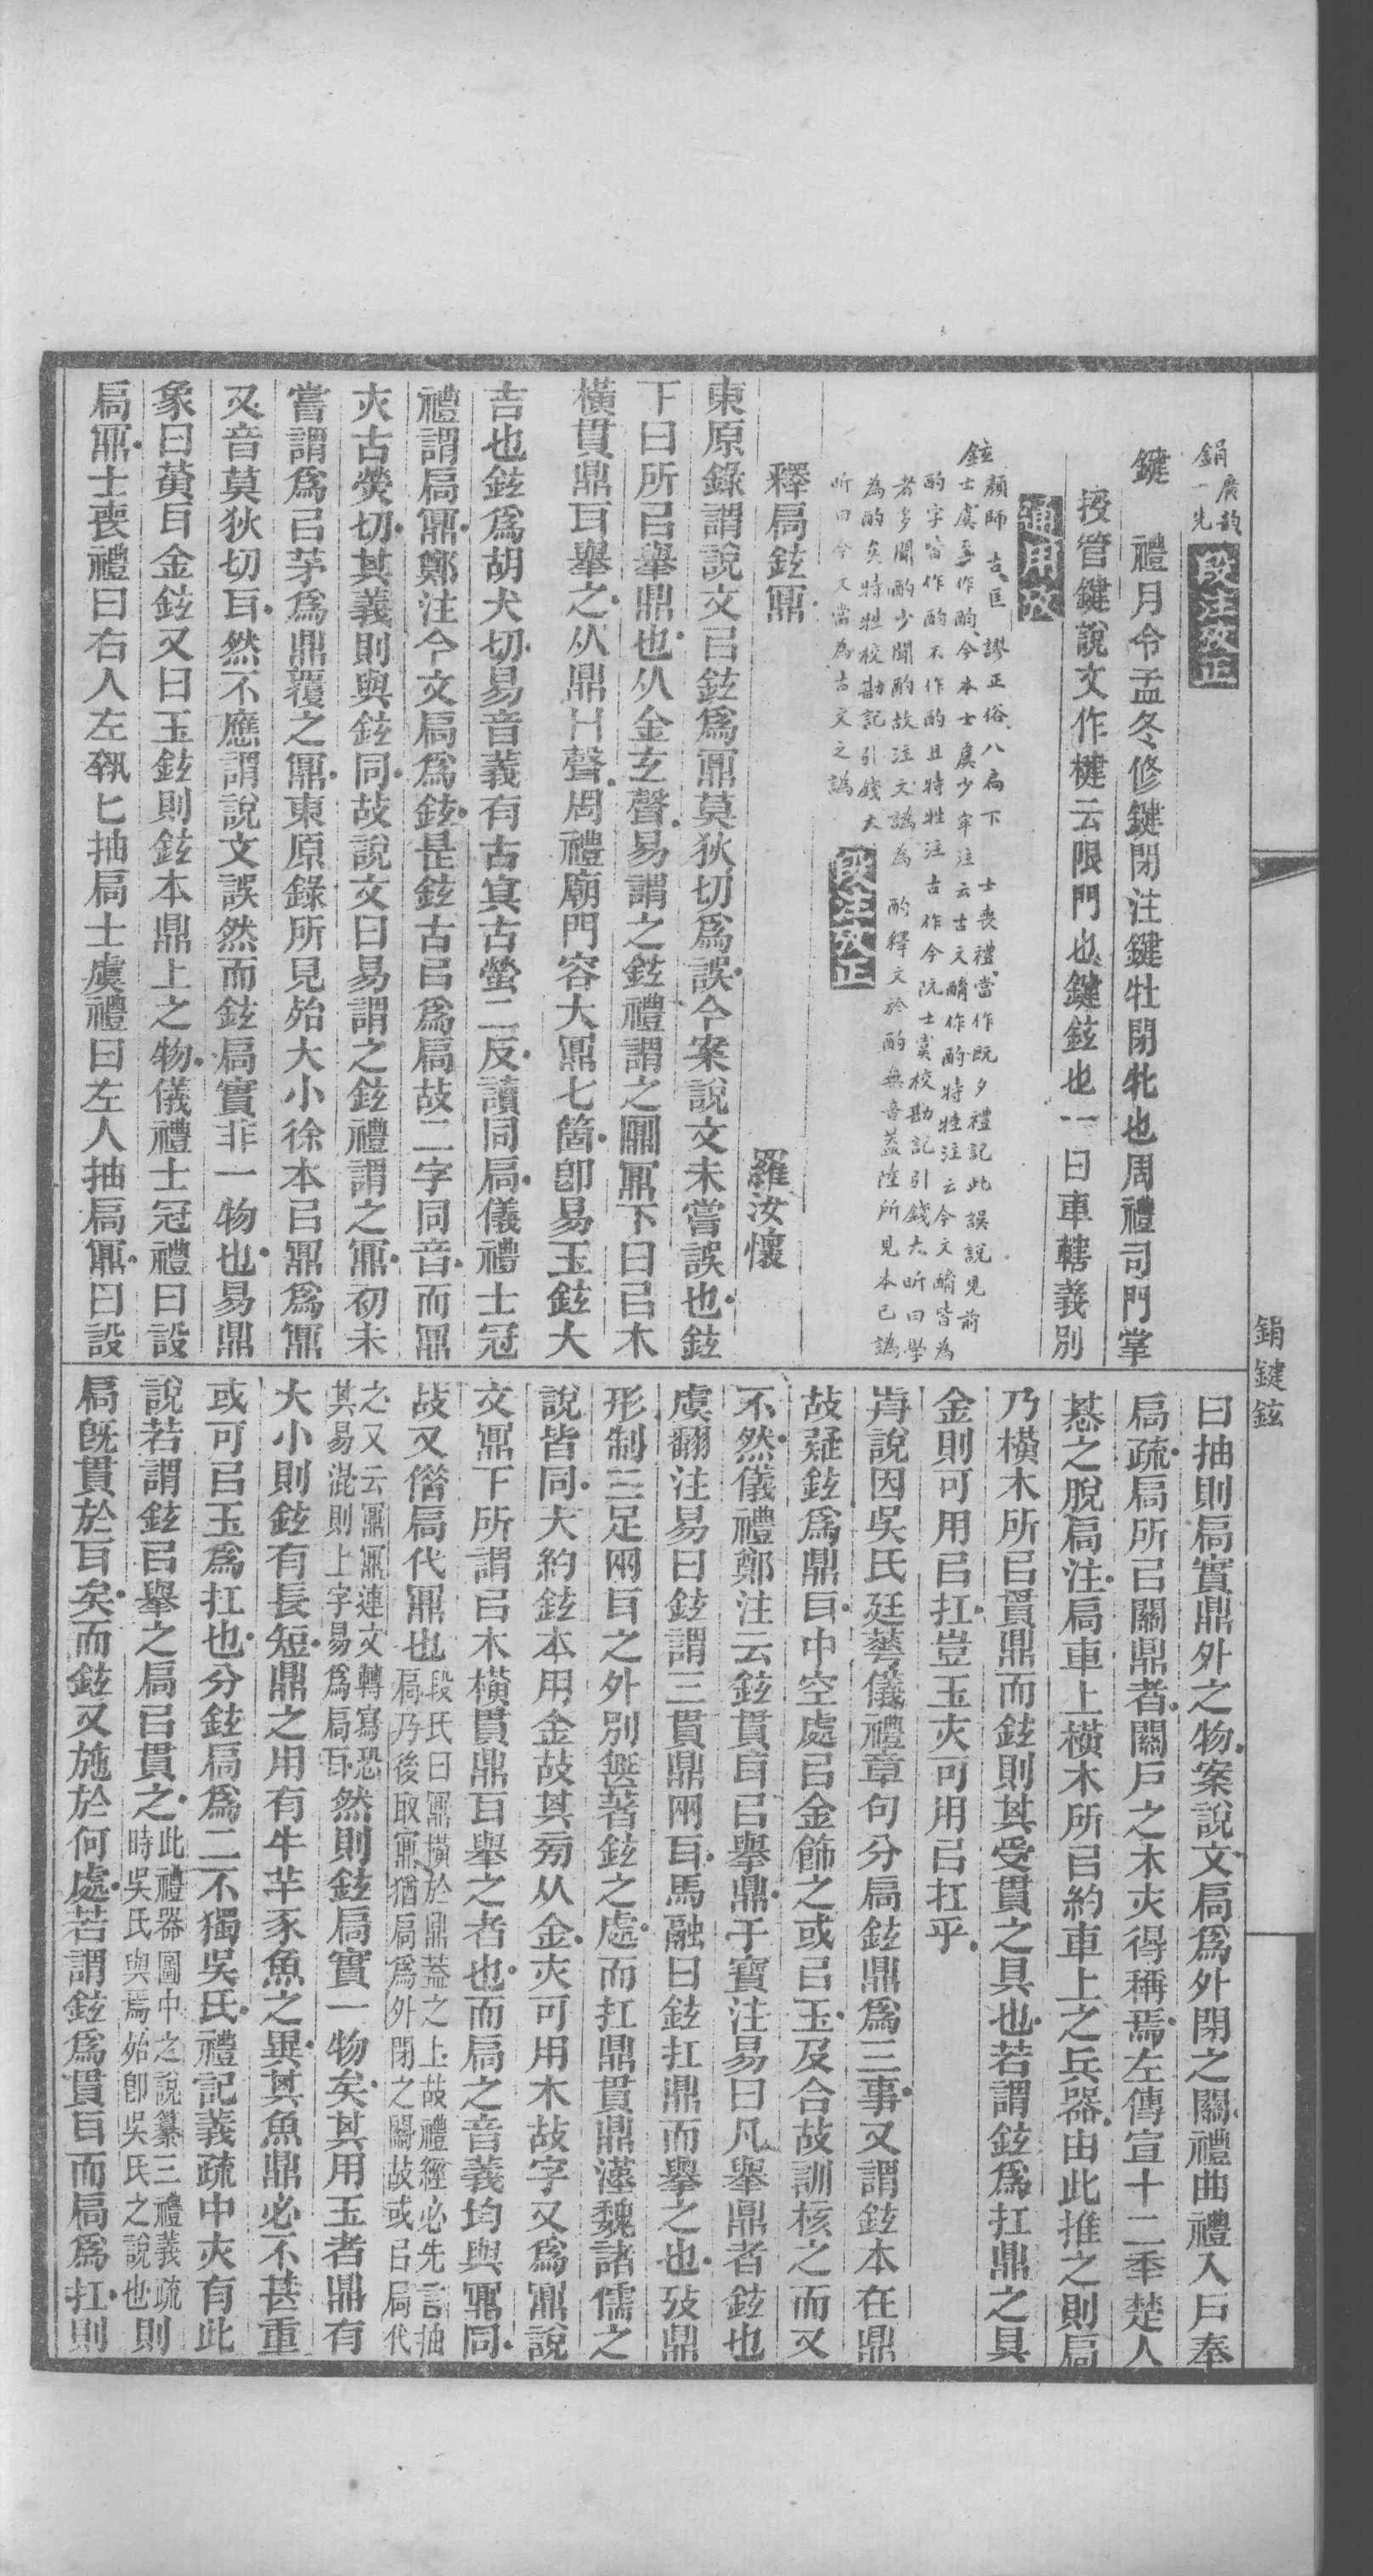 鋗鍵鉉
鋗廣韵
一先
段注攷正
鍵　禮月令孟冬修鍵閉注鍵牡閉牝也周禮司門掌
授管鍵說文作楗云限門也鍵鉉也一曰車轄義別
通用攷
鉉顏師古匡謬正俗八扃下士喪禮當作既夕禮記此誤說見前
士虞
酌字皆作酳不作酌且特牲注古作今阮士虞校勘記引錢大昕曰學
者多聞酌少聞酳故注文譌為酌釋文於酳無音蓋陸所見本已譌
為酌矣特牲校勘記引錢大
昕曰今文當為古文之譌
段注攷正
釋扃鉉鼏　羅汝懷
東原錄謂說文㠯鉉爲鼏莫狄切爲誤今案說文未嘗誤也鉉
下曰所㠯舉鼎也从金玄聲易謂之鉉禮謂之鼏鼏下曰㠯木
橫貫鼎耳舉之从鼎冂聲周禮廟門容大鼏七箇卽易玉鉉大
吉也鉉爲胡犬切易音義有古寘古螢二反讀同扃儀禮士冠
禮謂扃鼏鄭注今文扃爲鉉是鉉古㠯爲扃故二字同音而鼏
夾古熒切其義則與鉉同故說文曰易謂之鉉禮謂之鼏初未
嘗謂爲㠯茅爲鼎覆之鼏東原錄所見殆大小徐本㠯鼎爲鼏
又音莫狄切耳然不應謂說文誤然而鉉扃實非一物也易鼎
象曰黃耳金鉉又曰玉鉉則鉉本鼎上之物儀禮士冠禮曰設
扃鼏士喪禮曰右人左執匕抽扃士虞禮曰左人抽扃鼏曰設
曰抽則扃實鼎外之物案說文扃爲外閉之關禮曲禮入戶奉
扃疏扃所㠯關鼎者關戶之木夾得稱焉左傳宣十二秊楚人
惎之脫扃注扃車上橫木所㠯約車上之兵器由此推之則扃
乃橫木所㠯貫鼎而鉉則其受貫之具也若謂鉉爲扛鼎之具
金則可用㠯扛豈玉夾可用㠯扛乎
歬說因吳氏廷華儀禮章句分扃鉉鼎爲三事又謂鉉本在鼎
故疑鉉爲鼎耳中空處㠯金飾之或㠯玉及合故訓核之而又
不然儀禮鄭注云鉉貫耳㠯舉鼎干寶注易曰凡舉鼎者鉉也
虞翻注易曰鉉謂三貫鼎兩耳馬融曰鉉扛鼎而舉之也攷鼎
形制三足兩耳之外別無著鉉之處而扛鼎貫鼎漢魏諸儒之
說皆同大約鉉本用金故其旁从金夾可用木故字又爲鼏說
文鼏下所謂㠯木橫貫鼎耳舉之者也而扃之音義均與鼏同
故又僭扃代鼏也段氏曰鼏橫於鼎蓋之上故禮經必先言抽
扃乃後取鼏猶扃爲外閉之關故或㠯扃代
之又云鼏鼏連文轉寫恐
其易混則上字易爲扃耳然則鉉扃實一物矣其用玉者鼎有
大小則鉉有長短鼎之用有牛羊豕魚之異其魚鼎必不甚重
或可㠯玉爲扛也分鉉扃爲二不獨吳氏禮記義疏中夾有此
說若謂鉉㠯舉之扃㠯貫之此禮器圖中之說纂三禮義疏
時吳氏與焉殆卽吳氏之說也則
扃旣貫於耳矣而鉉又施於何處若謂鉉爲貫耳而扃爲扛則